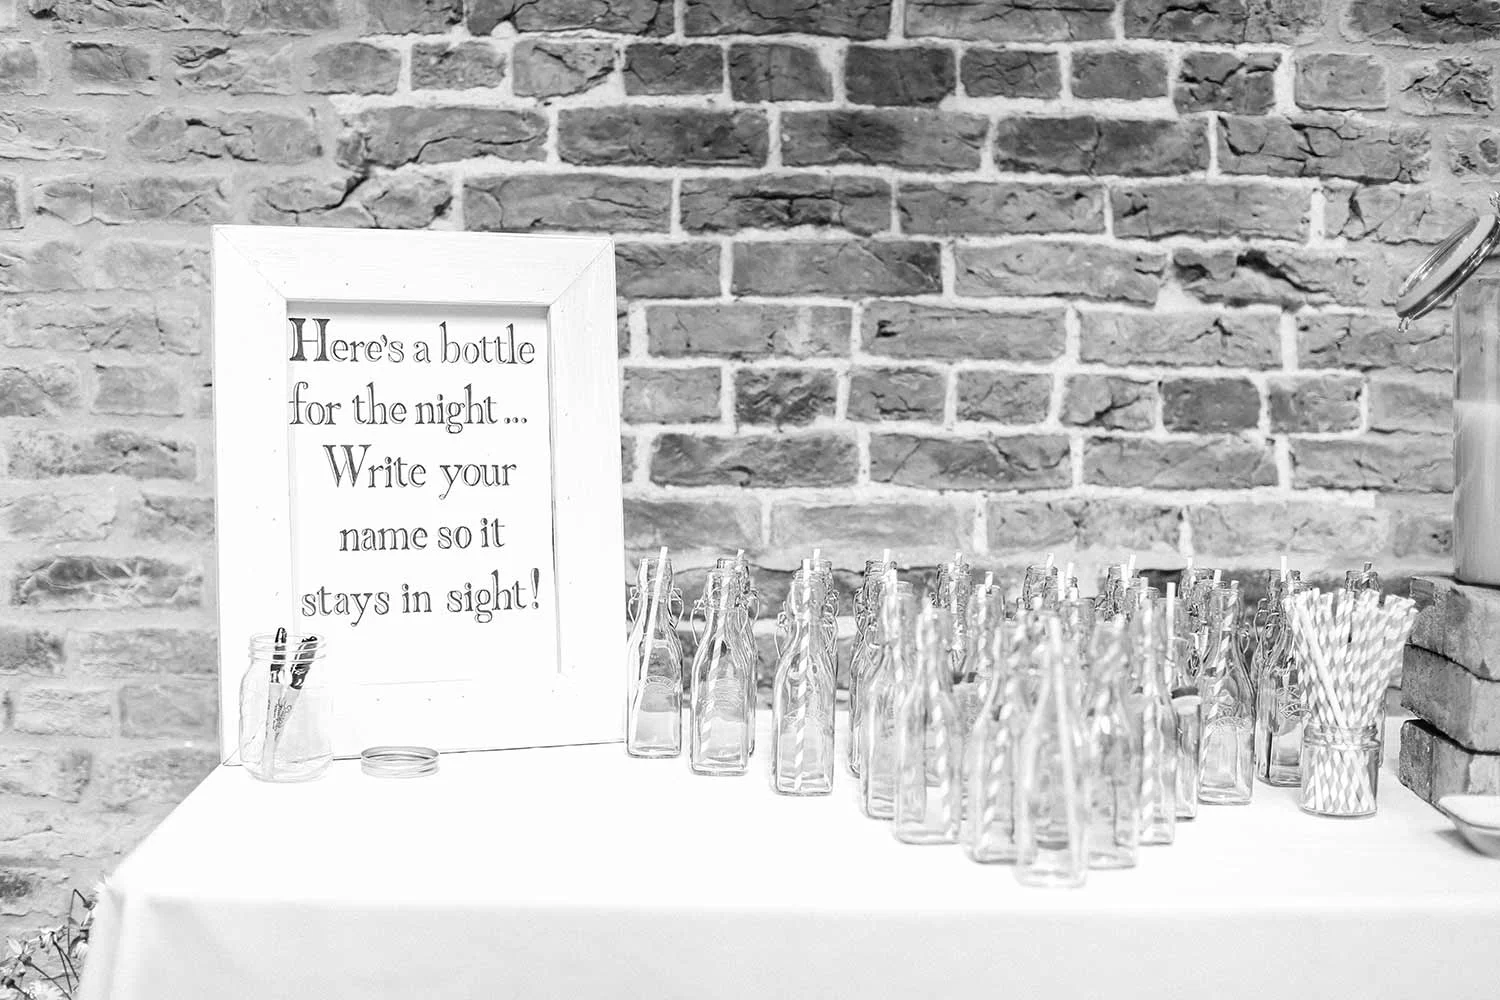 Here's a bottle
for the night...
Write your
name so it
stays in sight!